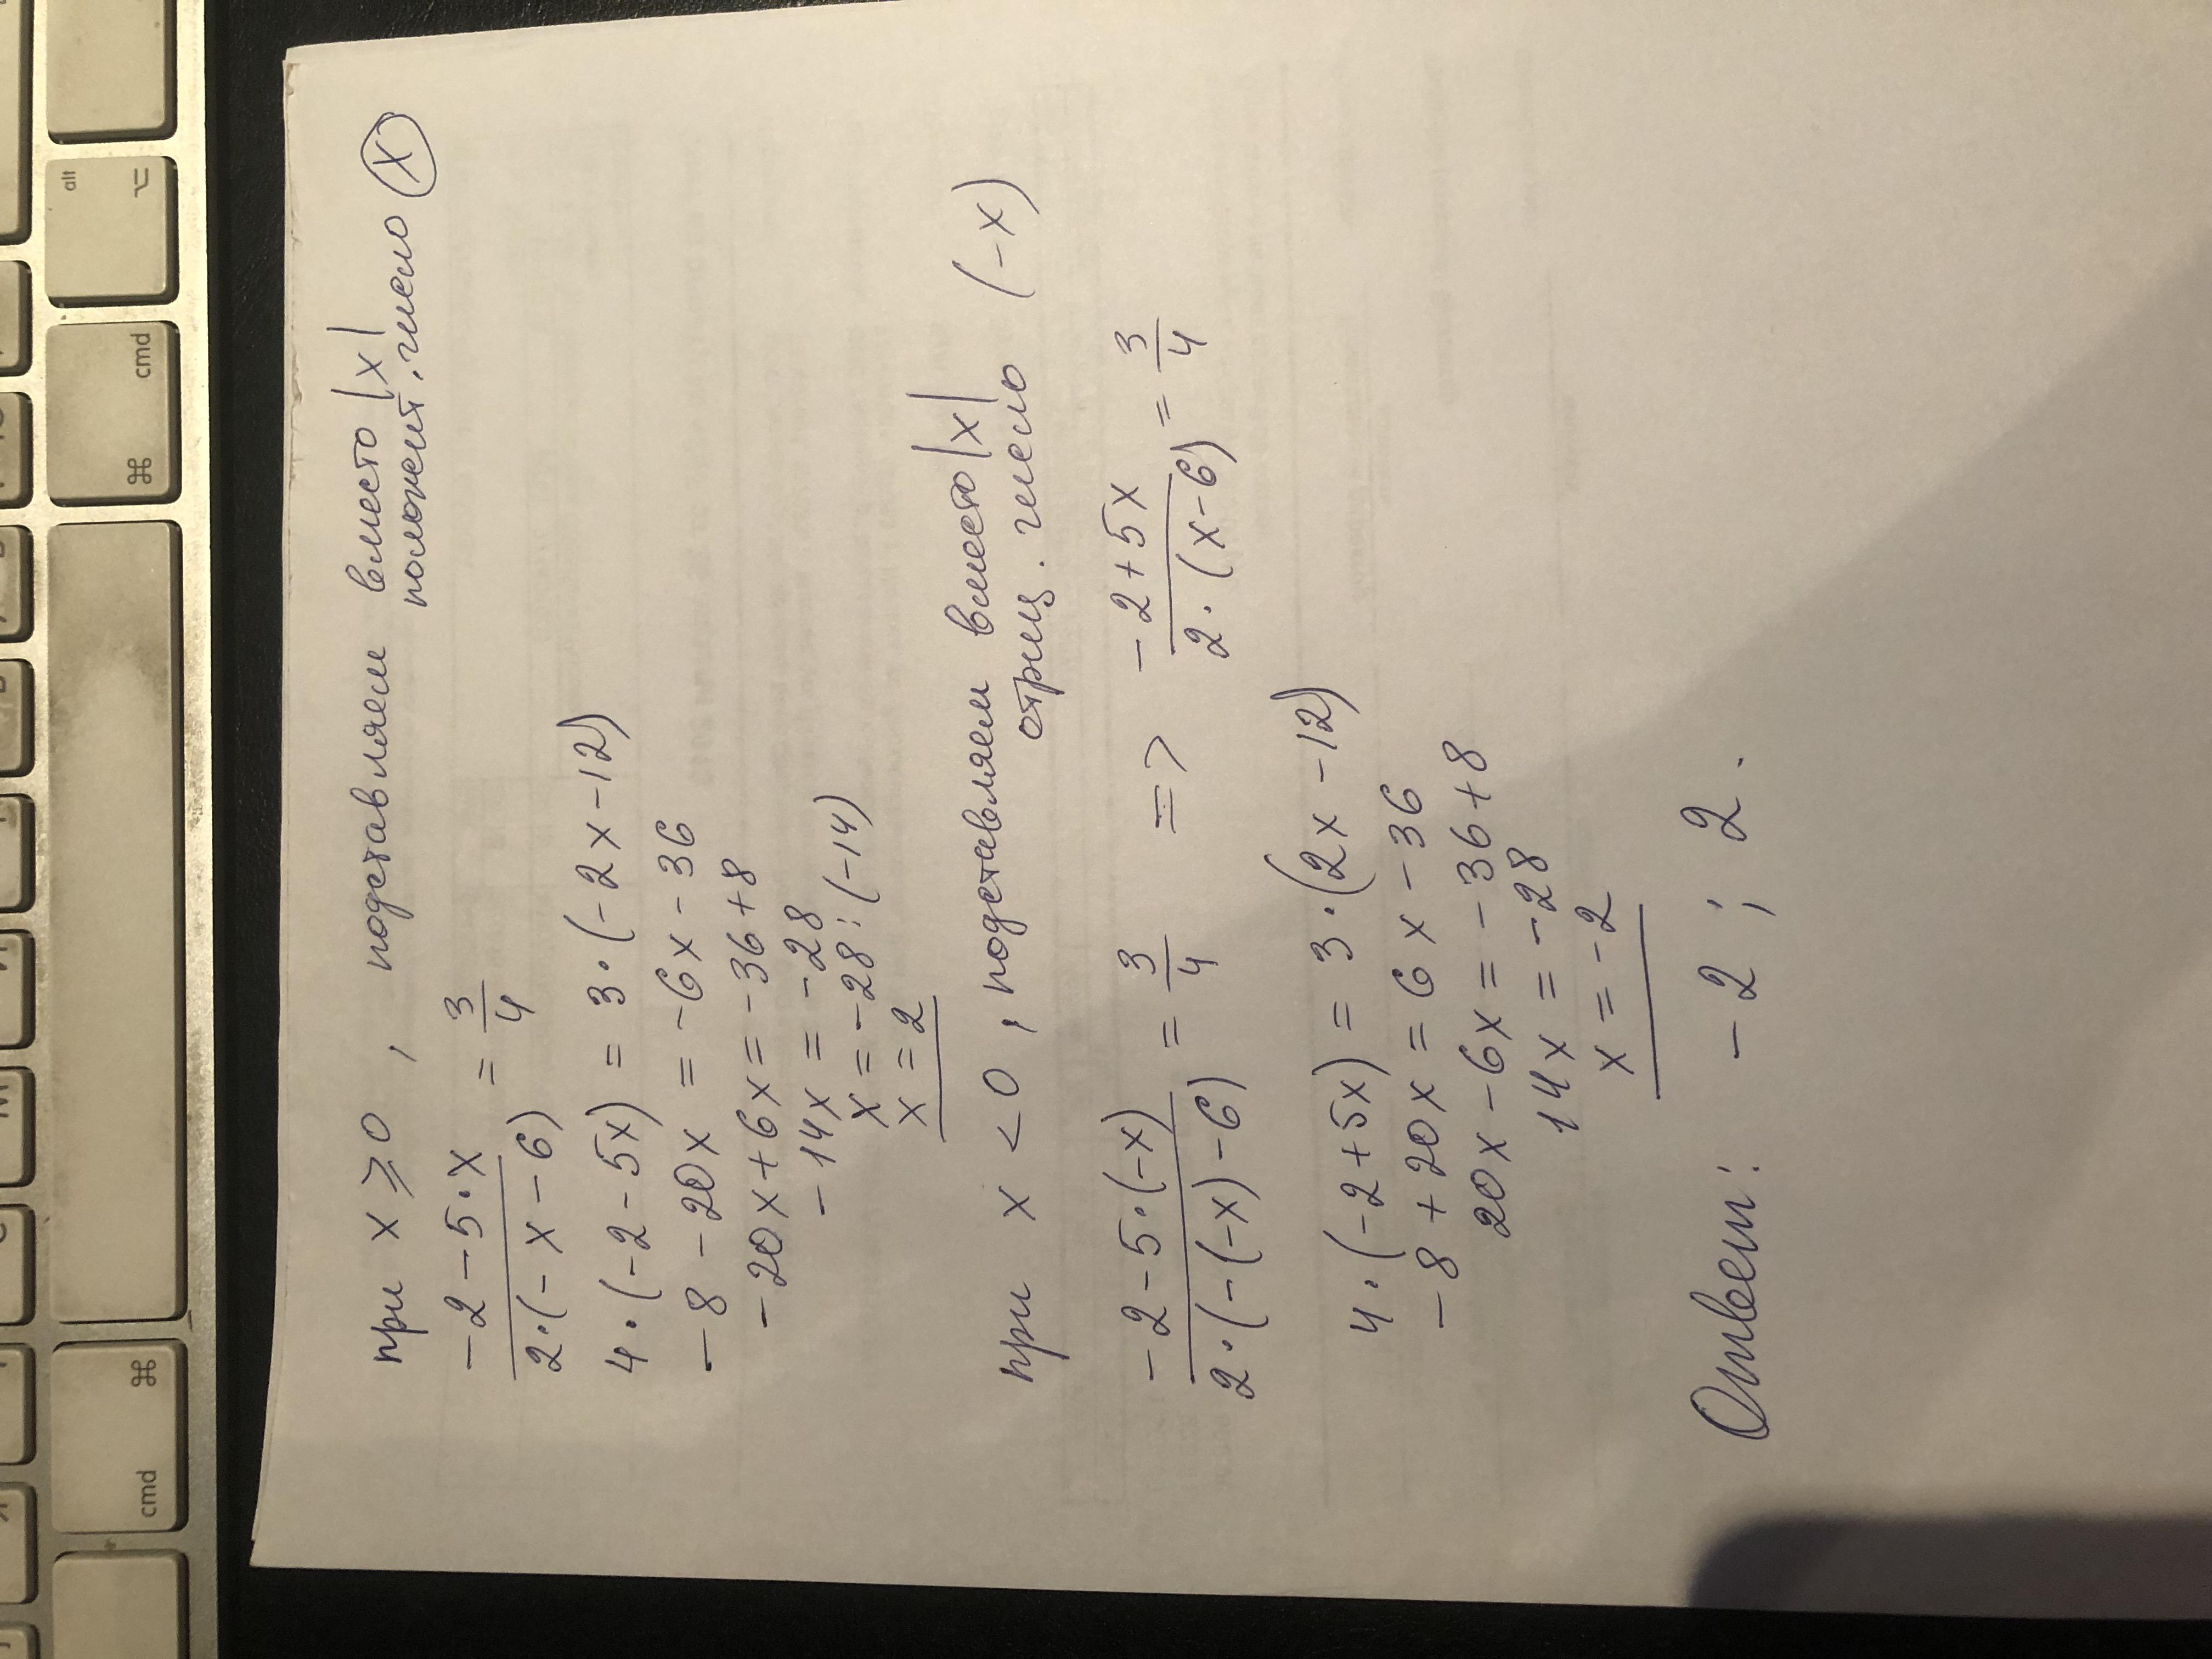 при x ⩾ 0, подставляем вместо |x|
положит. число (x)
(-2 - 5·x)/(2·(-x-6)) = 3/4
4·(-2-5x) = 3·(-2x-12)
-8 -20x = -6x - 36
-20x+6x = -36+8
-14x = -28
x = -28:(-14)
x = 2
при x < 0, подставляем вместо |x|
отриц. число (-x)
(-2-5·(-x))/(2·(-(-x)-6)) = 3/4 => (-2+5x)/(2·(x-6)) = 3/4
4·(-2+5x) = 3·(2x-12)
-8+20x = 6x-36
20x-6x = -36+8
14x = -28
x = -2
Ответ: -2; 2.
alt
⌥
cmd
⌘
⌘
cmd